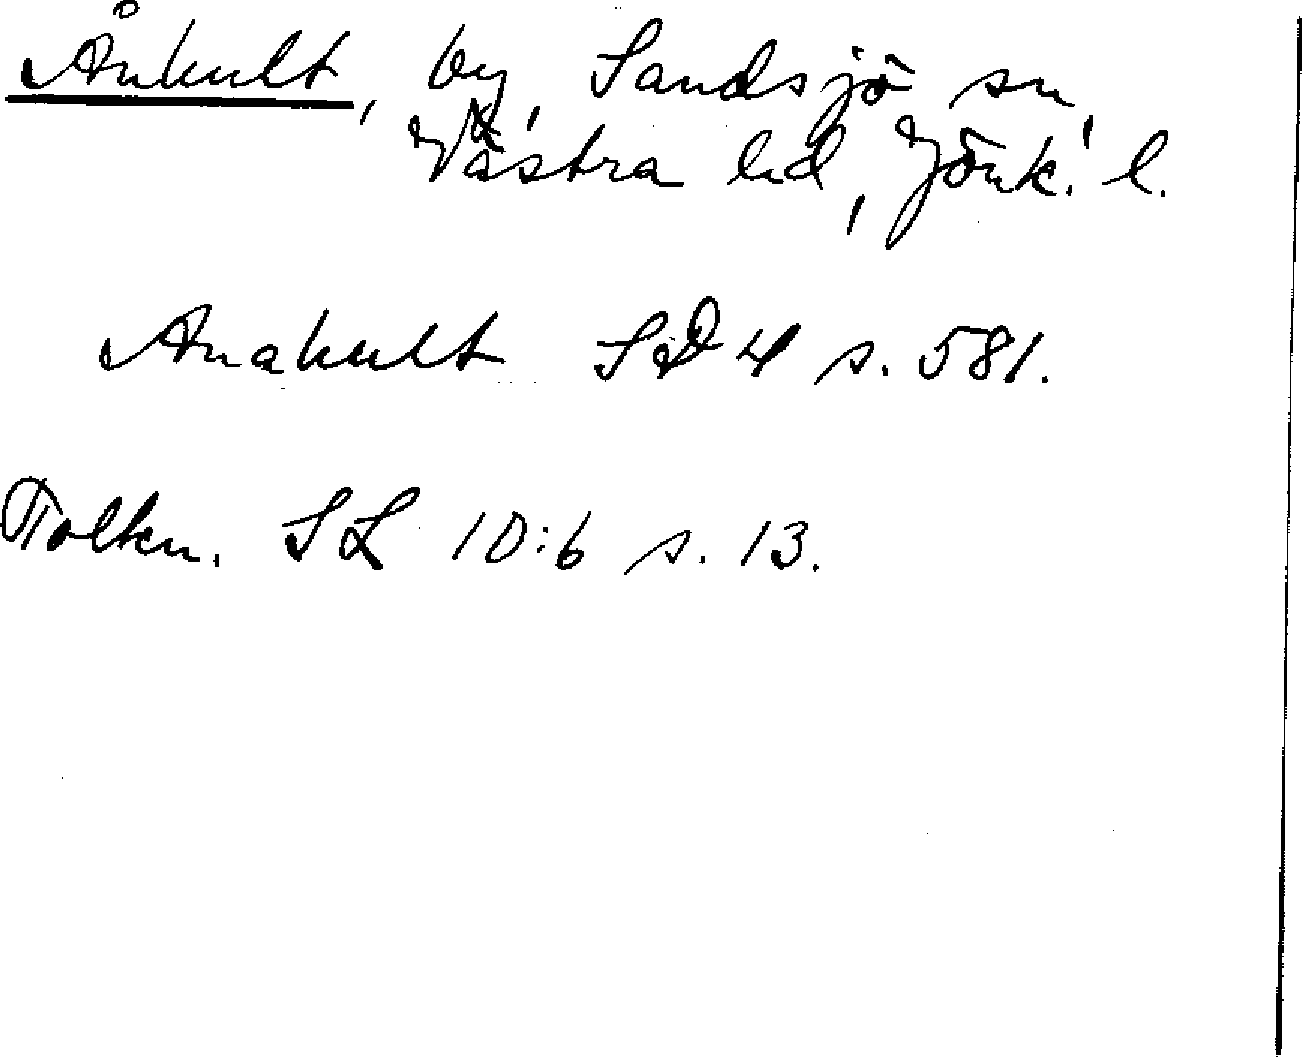 Ånhult, by, Sandsjö sn,
Västra hd, Jönk. l.
Anahult SD 4 s. 581.
Tolkn. SL 10:6 s. 13.